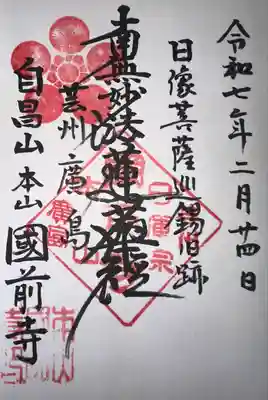 令和七年二月廿四日
日像菩薩巡錫旧跡
南無妙法蓮華経
芸州廣島
自昌山本山國前寺